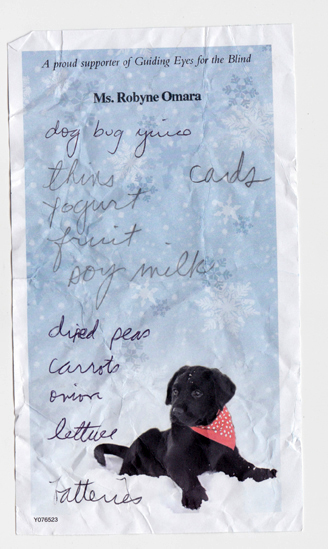 A proud supporter of Guiding Eyes for the Blind
Ms. Robyne Omara
dog bug
thins cards
yogurt
fruit
soy milk
dried peas
carrots
onion
lettuce
batteries
Y076523